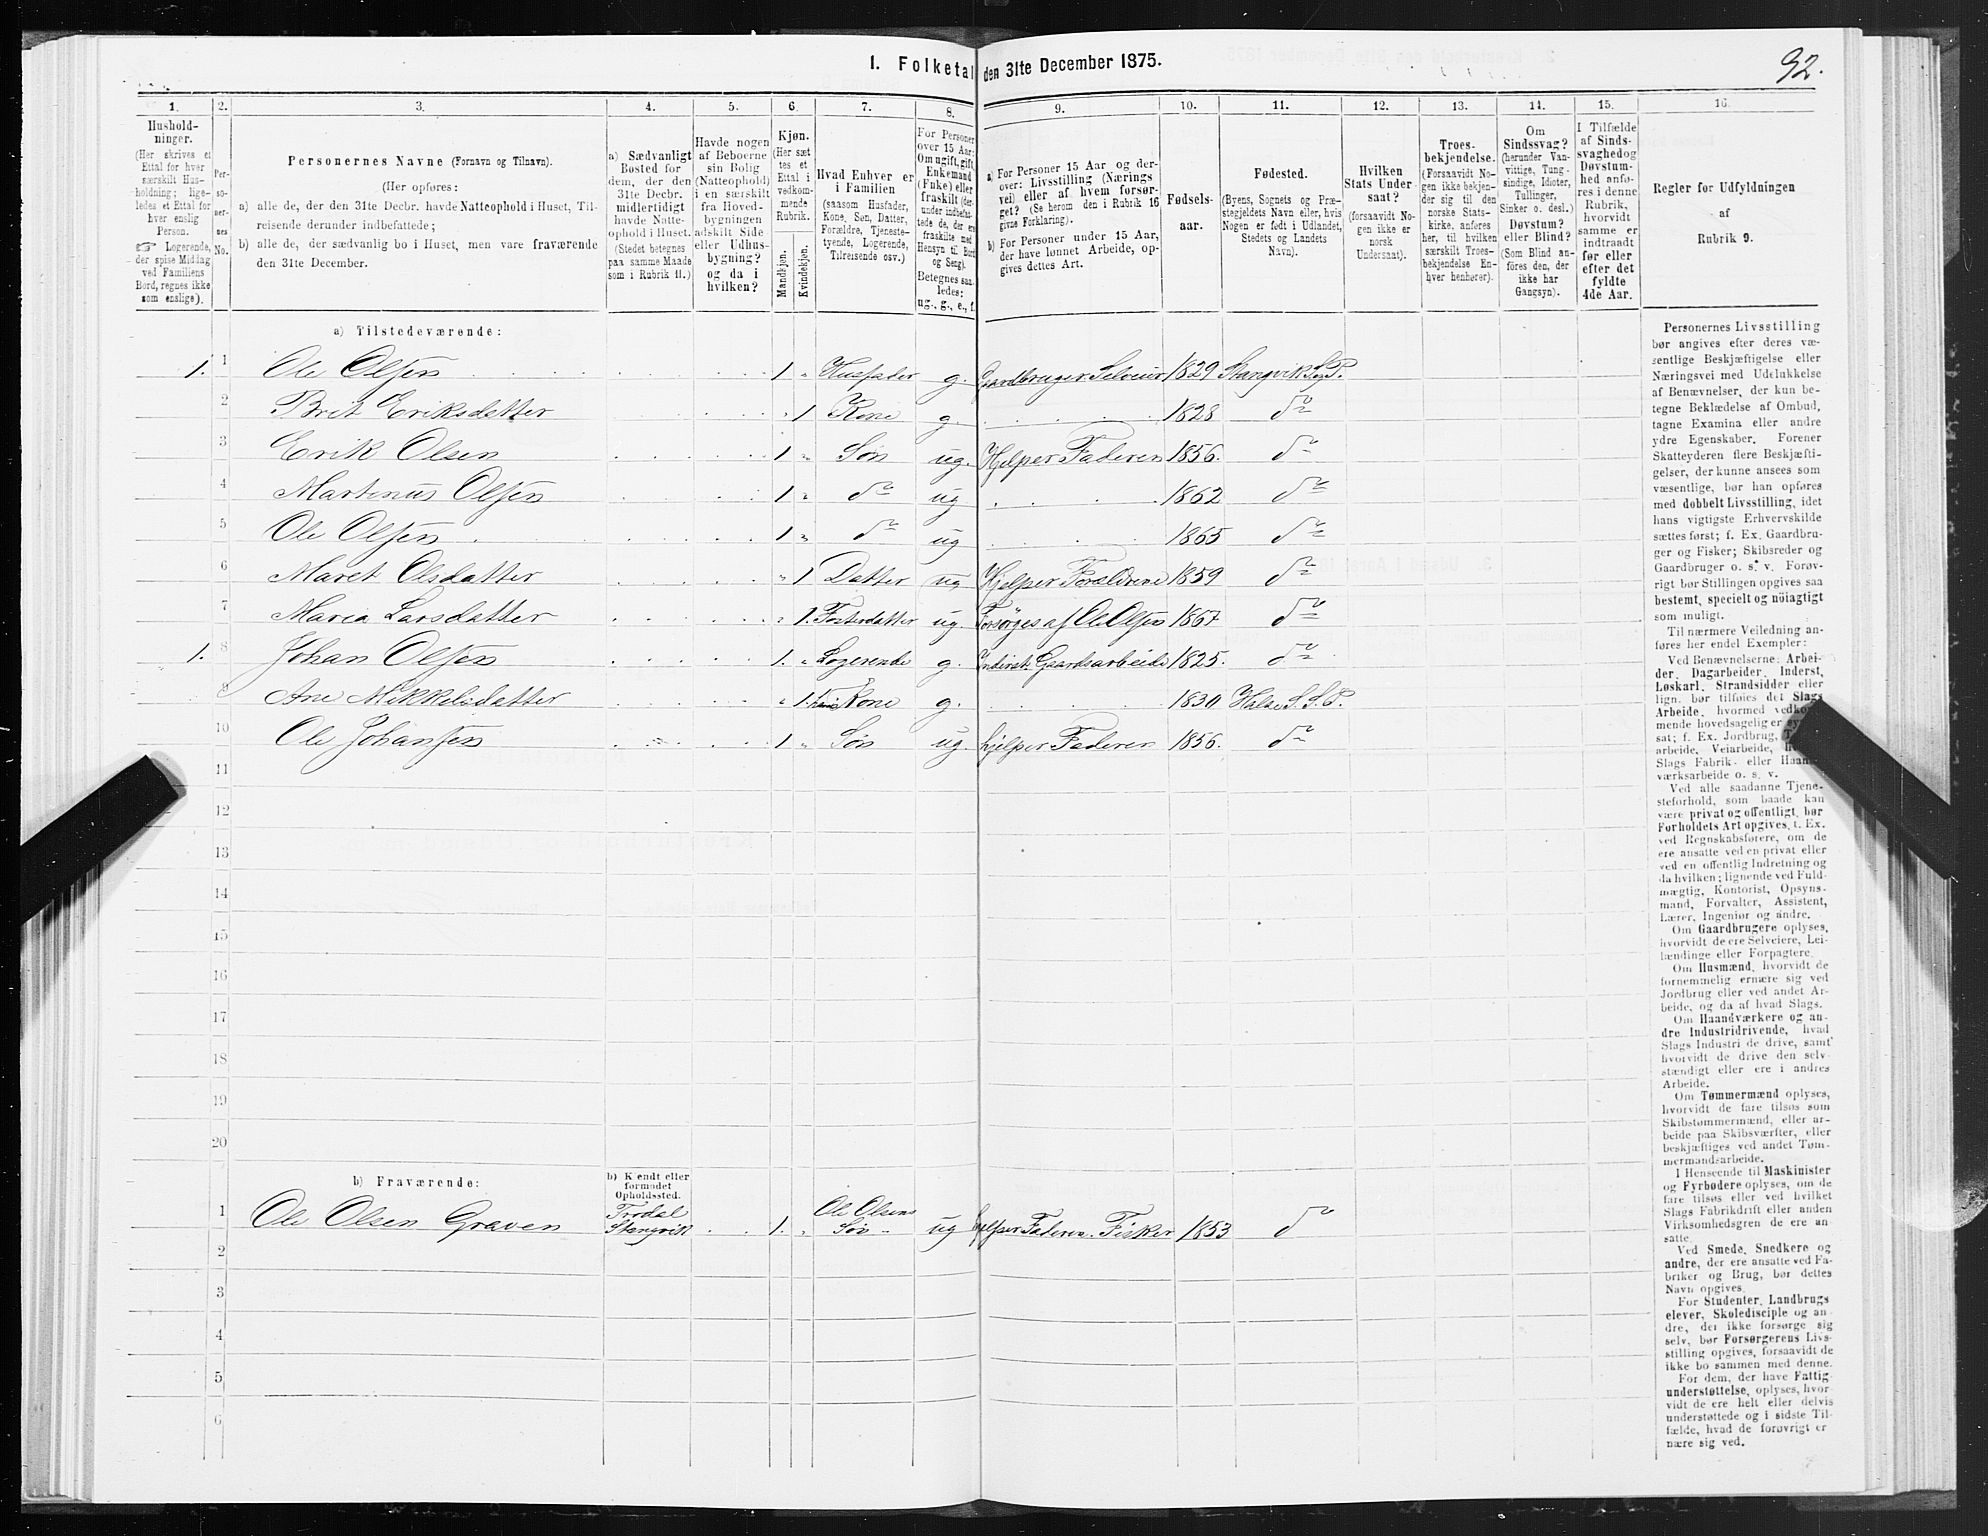 1. Folketal den 31te December 1875.
92.
1. 2. 3. 4. 5. 6. 7. 8. 9. 10. 11. 12. 13. 14. 15. 16.
Hushold-
ninger.
(Her skrives et
Ettal for hver
særskilt Hus-
holdning; lige-
ledes et Ettal for
hver enslig
Person.
☞ Logerende,
der spise Middag
ved Familiens
Bord, regnes ikke
som enslige).
Per-
so-
ner-
nes
No.
Personernes Navne (Fornavn og Tilnavn).
(Her opføres:
a) alle de, der den 31te Decbr. havde Natteophold i Huset, Til-
reisende derunder indbefattede;
b) alle de, der sædvanlig bo i Huset, men vare fraværende
den 31te December.
a) Sædvanligt
Bosted for
dem, der den
31te Decbr.
midlertidigt
havde Natte-
ophold i Huset.
(Stedet betegnes
paa samme Maade
som i Rubrik 11.)
Havde nogen
af Beboerne
sin Bolig
(Natteophold)
i en særskilt
fra Hoved-
bygningen
adskilt Side-
eller Udhus-
bygning?
og da i
hvilken?
Kjøn.
(Her sæt
tes et
Ettal i
vedkom-
mende
Rubrik.
Mandkjøn.
Kvindekjøn.
Hvad Enhver er
i Familien
(saasom Husfader,
Kone, Søn, Datter,
Forældre, Tjeneste-
tyende, Logerende,
Tilreisende osv.)
For Personer
over 15 Aar:
Om ugift, gift
Enkemand
(Enke) eller
fraskilt (der-
under indbefat-
tede de, der ere
fraskilte med
Hensyn til Bord
og Seng).
Betegnes saa-
ledes:
ug., g., e., f.
a) For Personer 15 Aar og der-
over: Livsstilling (Nærings
vei) eller af hvem forsør-
get? (Se herom den i Rubrik 16
givne Forklaring).
b) For Personer under 15 Aar,
der have lønnet Arbeide, op-
gives dettes Art.
Fødsels-
aar.
Fødested.
(Byens, Sognets og Præ-
stegjeldets Navn eller, hvis
Nogen er født i Udlandet,
Stedets og Landets
Navn).
Hvilken
Stats Under-
saat?
(forsaavidt No-
gen ikke er
norsk
Undersaat).
Troes-
bekjendelse.
(Forsaavidt No-
gen ikke bekjen-
der sig til den
norske Stats-
kirke, anføres
her, til hvilken
særskilt Troes-
bekjendelse En-
hver henhører).
Om
Sindssvag?
(herunder Van-
vittige, Tung-
sindige, Idioter,
Tullinger,
Sinker o. desl.)
Døvstum?
eller Blind?
(Som Blind an-
føres den, der
ikke har
Gangsyn).
I Tilfælde
af Sinds-
svaghed og
Døvstum-
hed anfø-
res i denne
Rubrik,
hvorvidt
samme er
indtraadt
før eller
efter det
fyldte
4de Aar.
Regler for Udfyldningen
af
Rubrik 9.
a) Tilstedeværende:
1. 1 Ole Olsen 1 Husfader g. Gaardbruger Selveier 1829 Stangvik S. P.
2 Brit Eriksdatter 1 Kone g. 1828 do
3 Erik Olsen 1 Søn ug. Hjelper Faderen 1856. do
4 Martinus Olsen 1 do ug 1862 do
5 Ole Olsen 1 do ug 1865 do
6 Maret Olsdatter 1 Datter ug Hjelper Forældrene 1859 do
7 Maria Larsdatter 1. Fosterdatter ug. Forsørges af Ole Olsen 1867 do
1. 8 Johan Olsen 1. Logerende g. Inderst Gaardsarbeide 1825. do
9 Ane Mikkelsdatter 1. hans Kone g. 1830 Halse S. S. P.
10 Ole Johansen 1 Søn ug. hjelper Faderen 1856. do
11
12
13
14
15
16
17
18
19
20
b) Fraværende:
b) Kjendt eller
formodet
Opholdssted.
1 Ole Olsen Graven Trødal Stangvik 1. Ole Olsens Søn ug hjelper Faderen. Fisker 1853 do
2
3
4
5
6
Personernes Livsstilling
bør angives efter deres væ-
sentlige Beskjæftigelse eller
Næringsvei med Udelukkelse
af Benævnelser, der kun be-
tegne Beklædelse af Ombud,
tagne Examina eller andre
ydre Egenskaber. Forener
Skatteyderen flere Beskjæfti-
gelser, der kunne ansees som
væsentlige, bør han opføres
med dobbelt Livsstilling, idet
hans vigtigste Erhvervskilde
sættes først; f. Ex. Gaardbru-
ger og Fisker; Skibsreder og
Gaardbruger o. s. v. Forøv-
rigt bør Stillingen opgives saa
bestemt, specielt og nöiagtigt
som muligt.
Til nærmere Veiledning an-
føres her endel Exempler:
Ved Benævnelserne: Arbei-
der, Dagarbeider, Inderst,
Løskarl, Strandsidder eller
lign. bør tilføies det Slags
Arbeide, hvormed
mende hovedsagelig er
sat; f. Ex. Jordbrug,
arbeide, Veiarbeide,
Slags Fabrik- eller
værksarbeide o. s. v.
Ved alle saadanne Tjene-
steforhold, som baade kan
være privat og offentligt, bør
Forholdets Art opgives, t. Ex.
ved Regnskabsførere, om de
ere ansatte ved en privat eller
ved en offentlig Indretning og
da hvilken; lignende ved Fuld-
mægtig, Kontorist, Opsyns-
mand, Forvalter, Assistent,
Lærer, Ingeniør og andre.
Om Gaardbrugere oplyses,
hvorvidt de ere Selveiere, Lei-
lændinge eller Forpagtere.
Om Husmænd, hvorvidt de
fornemmelig ernære sig ved
Jordbrug eller ved andet Ar-
beide, og da af hvad Slags.
Om Haandværkere og an-
dre Industridrivende, hvad
Slags Industri de drive, samt
hvorvidt de drive den selv-
stændigt eller ere i andres
Arbeide.
Om Tømmermænd oplyses,
hvorvidt de fare tilsøs som
Skibstømmermænd, eller ar-
beide paa Skibsværfter, eller
beskjæftiges ved andet Tøm-
mermandsarbeide.
I Henseende til Maskinister
og Fyrbødere oplyses, om de
fare tilsøs eller ved hvilket
Slags Fabrikdrift eller anden
Virksomhedsgren de ere an-
satte.
Ved Smede, Snedkere og
andre, der ere ansatte ved Fa-
briker og Brug, bør dettes
Navn opgives.
For Studenter, Landbrugs
elever, Skoledisciple og an-
dre, der ikke forsørge sig
selv, bør Forsørgerens Livs-
stilling opgives, forsaavidt de
ikke bo sammen med denne.
For dem, der have Fattig-
understøttelse, oplyses, hvor-
vidt de ere helt eller delvis
understøttede og i sidste Til-
fælde, hvad de forøvrigt er
nære sig ved.